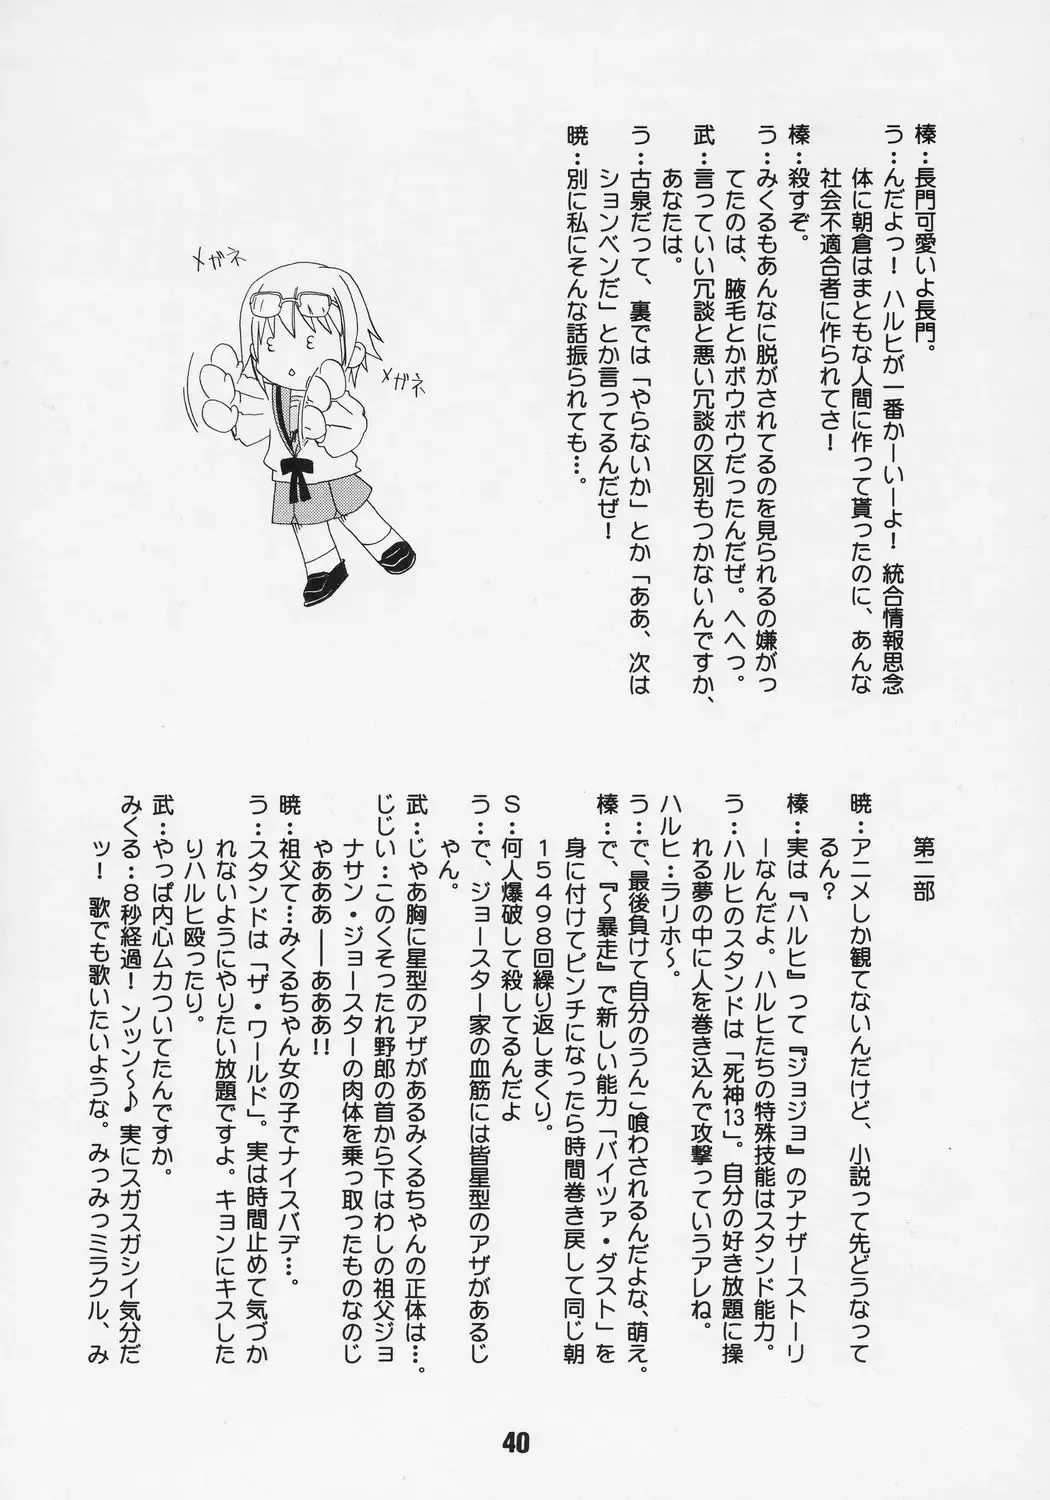 榛：長門可愛いよ長門。
う：んだよっ！ハルヒが一番かーいーよ！統合情報思念
体に朝倉はまともな人間に作って貰ったのに、あんな
社会不適合者に作られてさ！
榛：殺すぞ。
う：みくるもあんなに脱がされてるのを見られるの嫌がっ
てたのは、腋毛とかボウボウだったんだぜ。へへっ。
武：言っていい冗談と悪い冗談の区別もつかないんですか、
あなたは。
う：古泉だって、裏では「やらないか」とか「ああ、次は
ションベンだ」とか言ってるんだぜ！
暁：別に私にそんな話振られても…。
メガネ
メガネ
第二部
暁：アニメしか観てないんだけど、小説って先どうなって
るん？
榛：実は『ハルヒ』って『ジョジョ』のアナザーストーリ
ーなんだよ。ハルヒたちの特殊技能はスタンド能力。
う：ハルヒのスタンドは「死神13」。自分の好き放題に操
れる夢の中に人を巻き込んで攻撃っていうアレね。
ハルヒ：ラリホ〜。
う：で、最後負けて自分のうんこ喰わされるんだよな、萌え。
榛：で、『〜暴走』で新しい能力「バイツァ・ダスト」を
身に付けてピンチになったら時間巻き戻して同じ朝
１５４９８回繰り返しまくり。
Ｓ：何人爆破して殺してるんだよ
う：で、ジョースター家の血筋には皆星型のアザがあるじ
ゃん。
武：じゃあ胸に星型のアザがあるみくるちゃんの正体は…。
じじい：このくそったれ野郎の首から下はわしの祖父ジョ
ナサン・ジョースターの肉体を乗っ取ったものなのじ
ゃあああ――あああ!!
暁：祖父て…みくるちゃん女の子でナイスバデ…。
う：スタンドは「ザ・ワールド」。実は時間止めて気づか
れないようにやりたい放題ですよ。キョンにキスした
りハルヒ殴ったり。
武：やっぱ内心ムカついてたんですか。
みくる：8秒経過！ンッン〜♪実にスガスガシイ気分だ
ッ！歌でも歌いたいような。みっみっミラクル、み
40